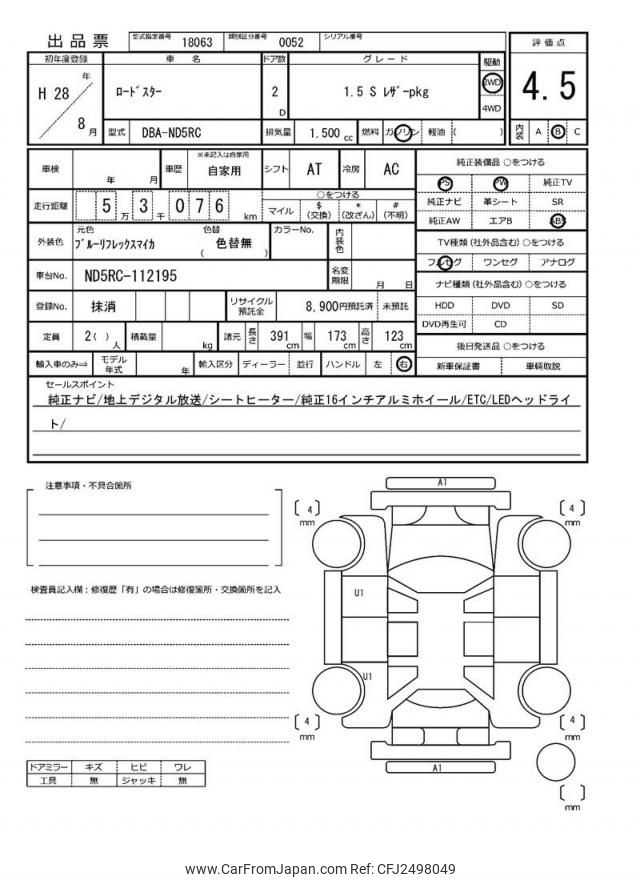 出品票 型式指定番号 18063 類別区分番号 0052 シリアル番号
評価点
4.5
内装 A B C
初年度登録 車名 ドア数 グレード 駆動
H 28 年 8 月
ﾛｰﾄﾞｽﾀｰ 2 D 1.5 S ﾚｻﾞｰpkg 2WD
4WD
型式 DBA-ND5RC 排気量 1,500 cc 燃料 ガソリン 軽油 ( )
車検 年 月 車歴 ※未記入は自家用 自家用 シフト AT 冷房 AC
走行距離 5 万 3 千 0 7 6 km
○をつける
マイル $ (交換) * (改ざん) # (不明)
外装色 元色 ﾌﾞﾙｰﾘﾌﾚｯｸｽﾏｲｶ 色替 ( 色替無 ) カラーNo. 内装色
車台No. ND5RC-112195 名変期限 月 日
登録No. 抹消 リサイクル預託金 8,900円預託済 未預託
定員 2( ) 人 積載量 kg 諸元 長さ 391 cm 幅 173 cm 高さ 123 cm
輸入車のみ⇒ モデル年式 年 輸入区分 ディーラー 並行 ハンドル 左 右
純正装備品 ○をつける
PS PW 純正TV
純正ナビ 革シート SR
純正AW エアB ABS
TV種類 (社外品含む) ○をつける
フルセグ ワンセグ アナログ
ナビ種類 (社外品含む) ○をつける
HDD DVD SD
DVD再生可 CD
後日発送品 ○をつける
新車保証書 車輌取説
セールスポイント
純正ナビ/地上デジタル放送/シートヒーター/純正16インチアルミホイール/ETC/LEDヘッドライ
ト/
注意事項・不具合箇所
検査員記入欄：修復歴「有」の場合は修復箇所・交換箇所を記入
ドアミラー キズ ヒビ ワレ
工具 無 ジャッキ 無
A1
4 mm
4 mm
U1
U1
4 mm
4 mm
A1
mm
www.CarFromJapan.com Ref: CFJ2498049